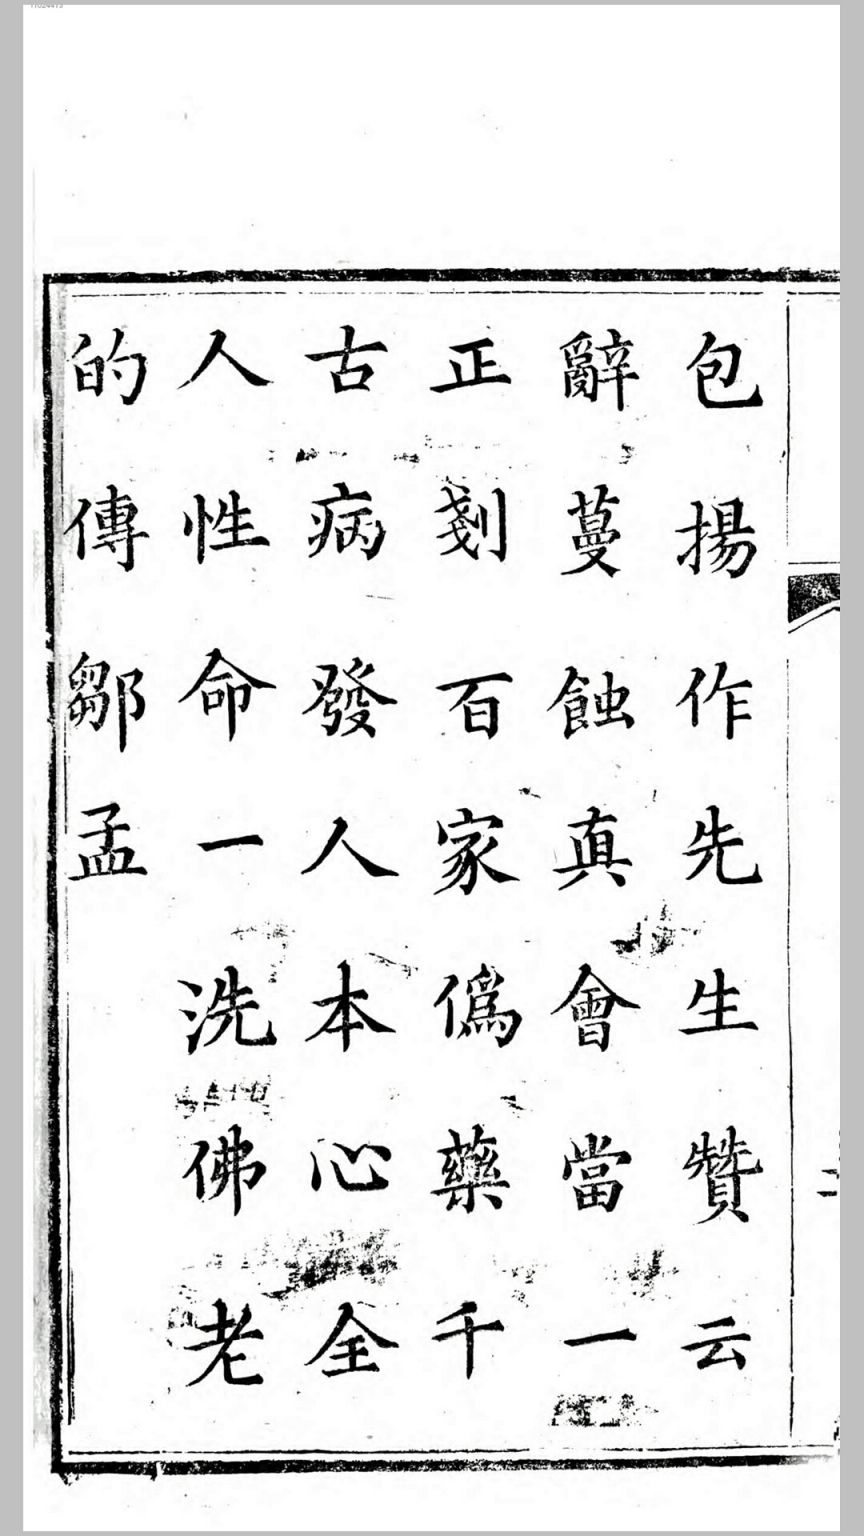 包揚作先生贊云
辭蔓蝕真會當一
正剗百家偽藥千
古病發人本心全
人性命一洗佛老
的傳鄒孟